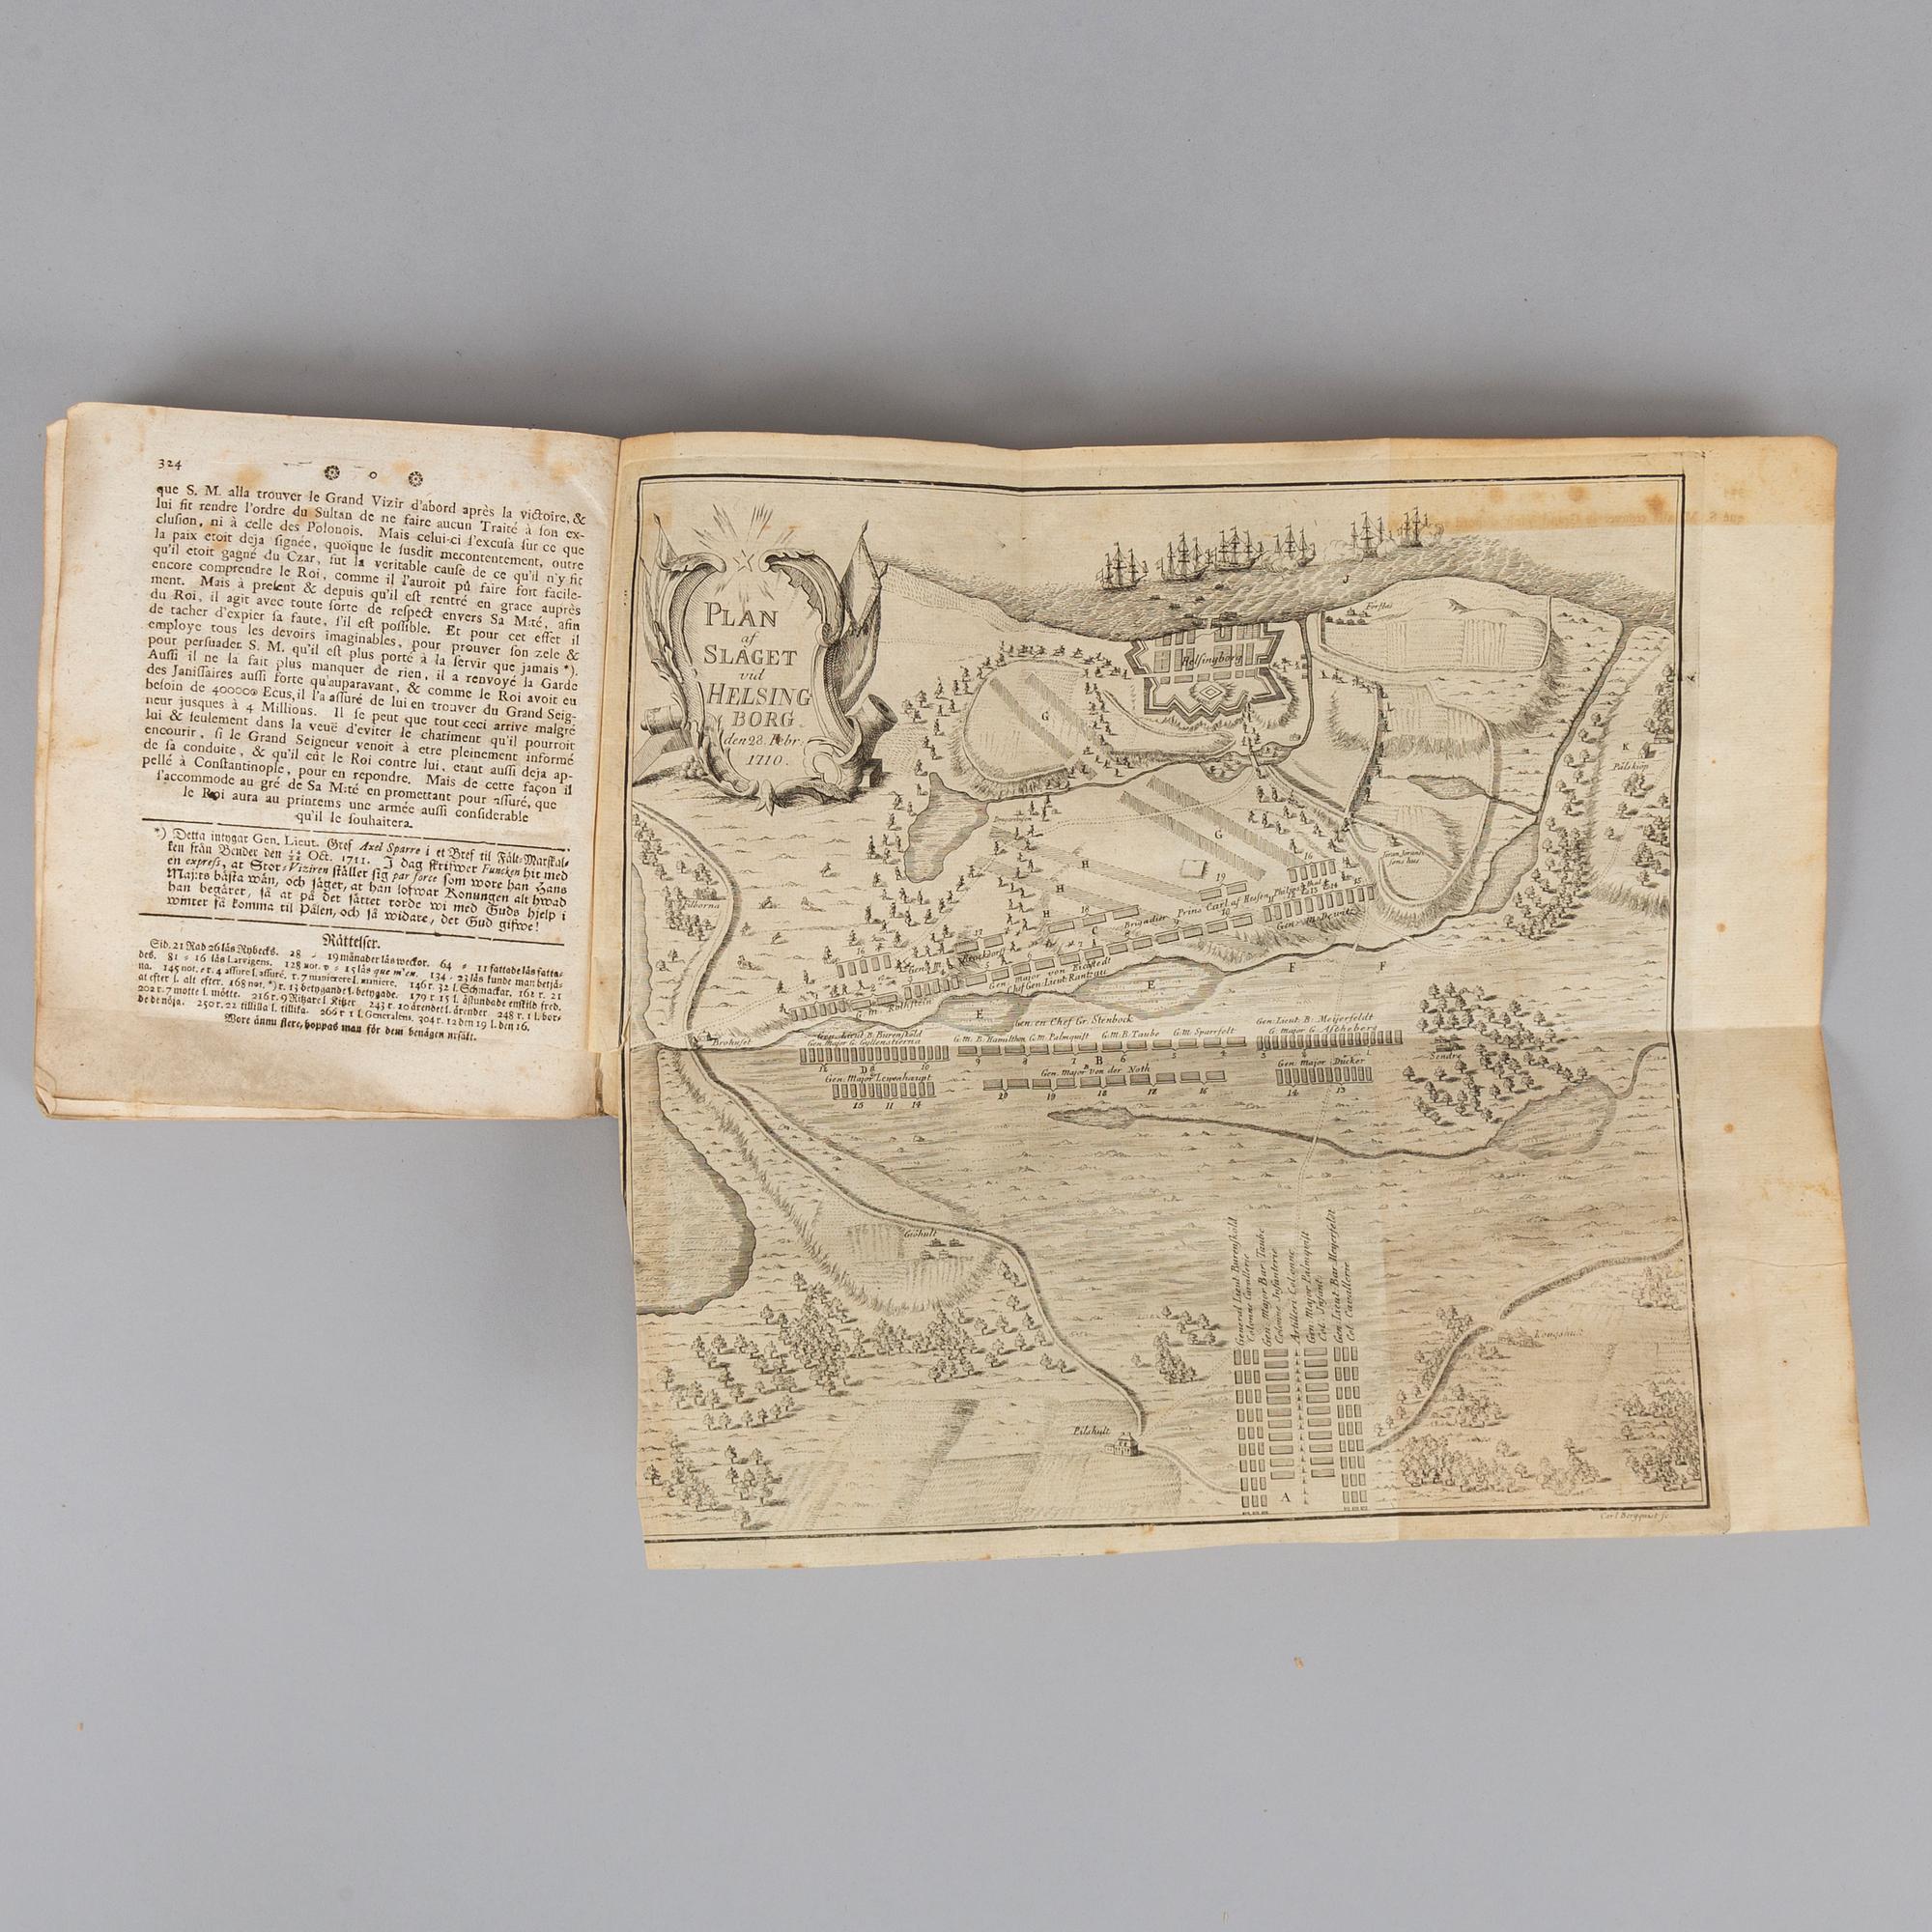 324
que S. M. alla trouver le Grand Vizir d'abord après la victoire, &
lui fit rendre l'ordre du Sultan de ne faire aucun Traité à son ex-
clusion, ni à celle des Polonois. Mais celui-ci s'excusa sur ce que
la paix etoit deja signée, quoique le susdit mecontentement, outre
qu'il etoit gagné du Czar, fut la veritable cause de ce qu'il n'y fit
encore comprendre le Roi, comme il l'auroit pû faire fort facile-
ment. Mais à present & depuis qu'il est rentré en grace auprès
du Roi, il agit avec toute sorte de respect envers Sa M:té, afin
de tacher d'expier sa faute, s'il est possible. Et pour cet effet il
employe tous les devoirs imaginables, pour prouver son zele &
pour persuader S. M. qu'il est plus porté à la servir que jamais *).
Aussi il ne la fait plus manquer de rien, il a renvoyé la Garde
des Janissaires aussi forte qu'auparavant, & comme le Roi avoit eu
besoin de 400000 Ecus, il l'a assuré de lui en trouver du Grand Seig-
neur jusques à 4 Millions. Il se peut que tout ceci arrive malgré
lui & seulement dans la veuë d'eviter le chatiment qu'il pourroit
encourir, si le Grand Seigneur venoit à etre pleinement informé
de sa conduite, & qu'il eût le Roi contre lui, etant aussi deja ap-
pellé à Constantinople, pour en repondre. Mais de cette façon il
s'accommode au gré de Sa M:té en promettant pour assuré, que
le Roi aura au printems une armée aussi considerable
qu'il le souhaitera.
*) Detta intygar Gen. Lieut. Gref Axel Sparre i et Bref til Fält-Marskal-
ken från Bender den Oct. 1711. I dag skrifwer Funcken hit med
en expres, at Stor-Viziren ställer sig par force som wore han Hans
Maj:ts bästa wän, och säger, at han lofwar Konungen alt hwad
han begärer, så at på det sättet torde wi med Guds hjelp i
winter få komma til Pålen, och så widare, det Gud gifwe!
Rättelser.
Sid. 21 Rad 26 läs Rybecks. 28 - 19 månader läs weckor. 64 - 11 fattade läs fatta-
des. 81 - 16 läs Larvigens. 128 not. - 15 läs que m'en. 134 - 23 läs kunde man betjä-
na. 145 not. r. 4 assure l. assuré. r. 7 manierere l. maniere. 146 r. 32 l. Schmackar. 162 r. 21
at efter l. alt efter. 168 not. *) r. 13 betygande l. betygade. 179 r. 15 l. åstundade enskild fred.
202 r. 7 motte l. mötte. 216 r. 9 Ritzare l. Kitzer 243 r. 10 ärendet l. ärender 248 r. 1 l. bor-
de de nöja. 250 r. 22 tillilla l. tillika. 266 r 1 l. Generalens. 304 r. 12 den 19 l. den 16.
Wore ännu flere, hoppas man för dem benägen ursäkt.
PLAN
af
SLAGET
vid
HELSING
BORG
den 28. Febr.
1710.
Helsingborg
J
K
Pålsköp
G
G
H
H
H
C
Filborna
16
19
17
18
Brigadier
Prins Carl af Hessen Philipsthal
Gen. M. Dewitz
Gen. Major von Eickstedt
Chef Gen: Lieut: Rantzau
G. M. Rothstein
E
E
F
F
Brohuset
Gen: en Chef Gr: Stenbock
Gen: Lieut: B: Burenskold
Gen: Major G: Gyllenstierna
G. M: B: Hamilthon G: M: Palmquist G: M: B: Taube G: M: Sparrfelt
Gen: Lieut: B: Meijerfeldt
G: major G Ascheberg
9 8 7 B 6 5 4
Gen: Major Lewenhaupt
Gen: Major von der Noth
Gen: Major Dücker
15 11 14
20 19 18 17 16
14 13
Sendre
Giöhult
General Lieut Burenskold
Colonne Cavallerie
Gen: Major Bar: Taube
Colonne Infanterie
Artilleri Colonne
Gen: Major Palmquist
Col. Infant.
Gen: Lieut: Bar Meyerfeldt
Col: Cavallerie
Pilshult
A
Carl Bergquist Sc.